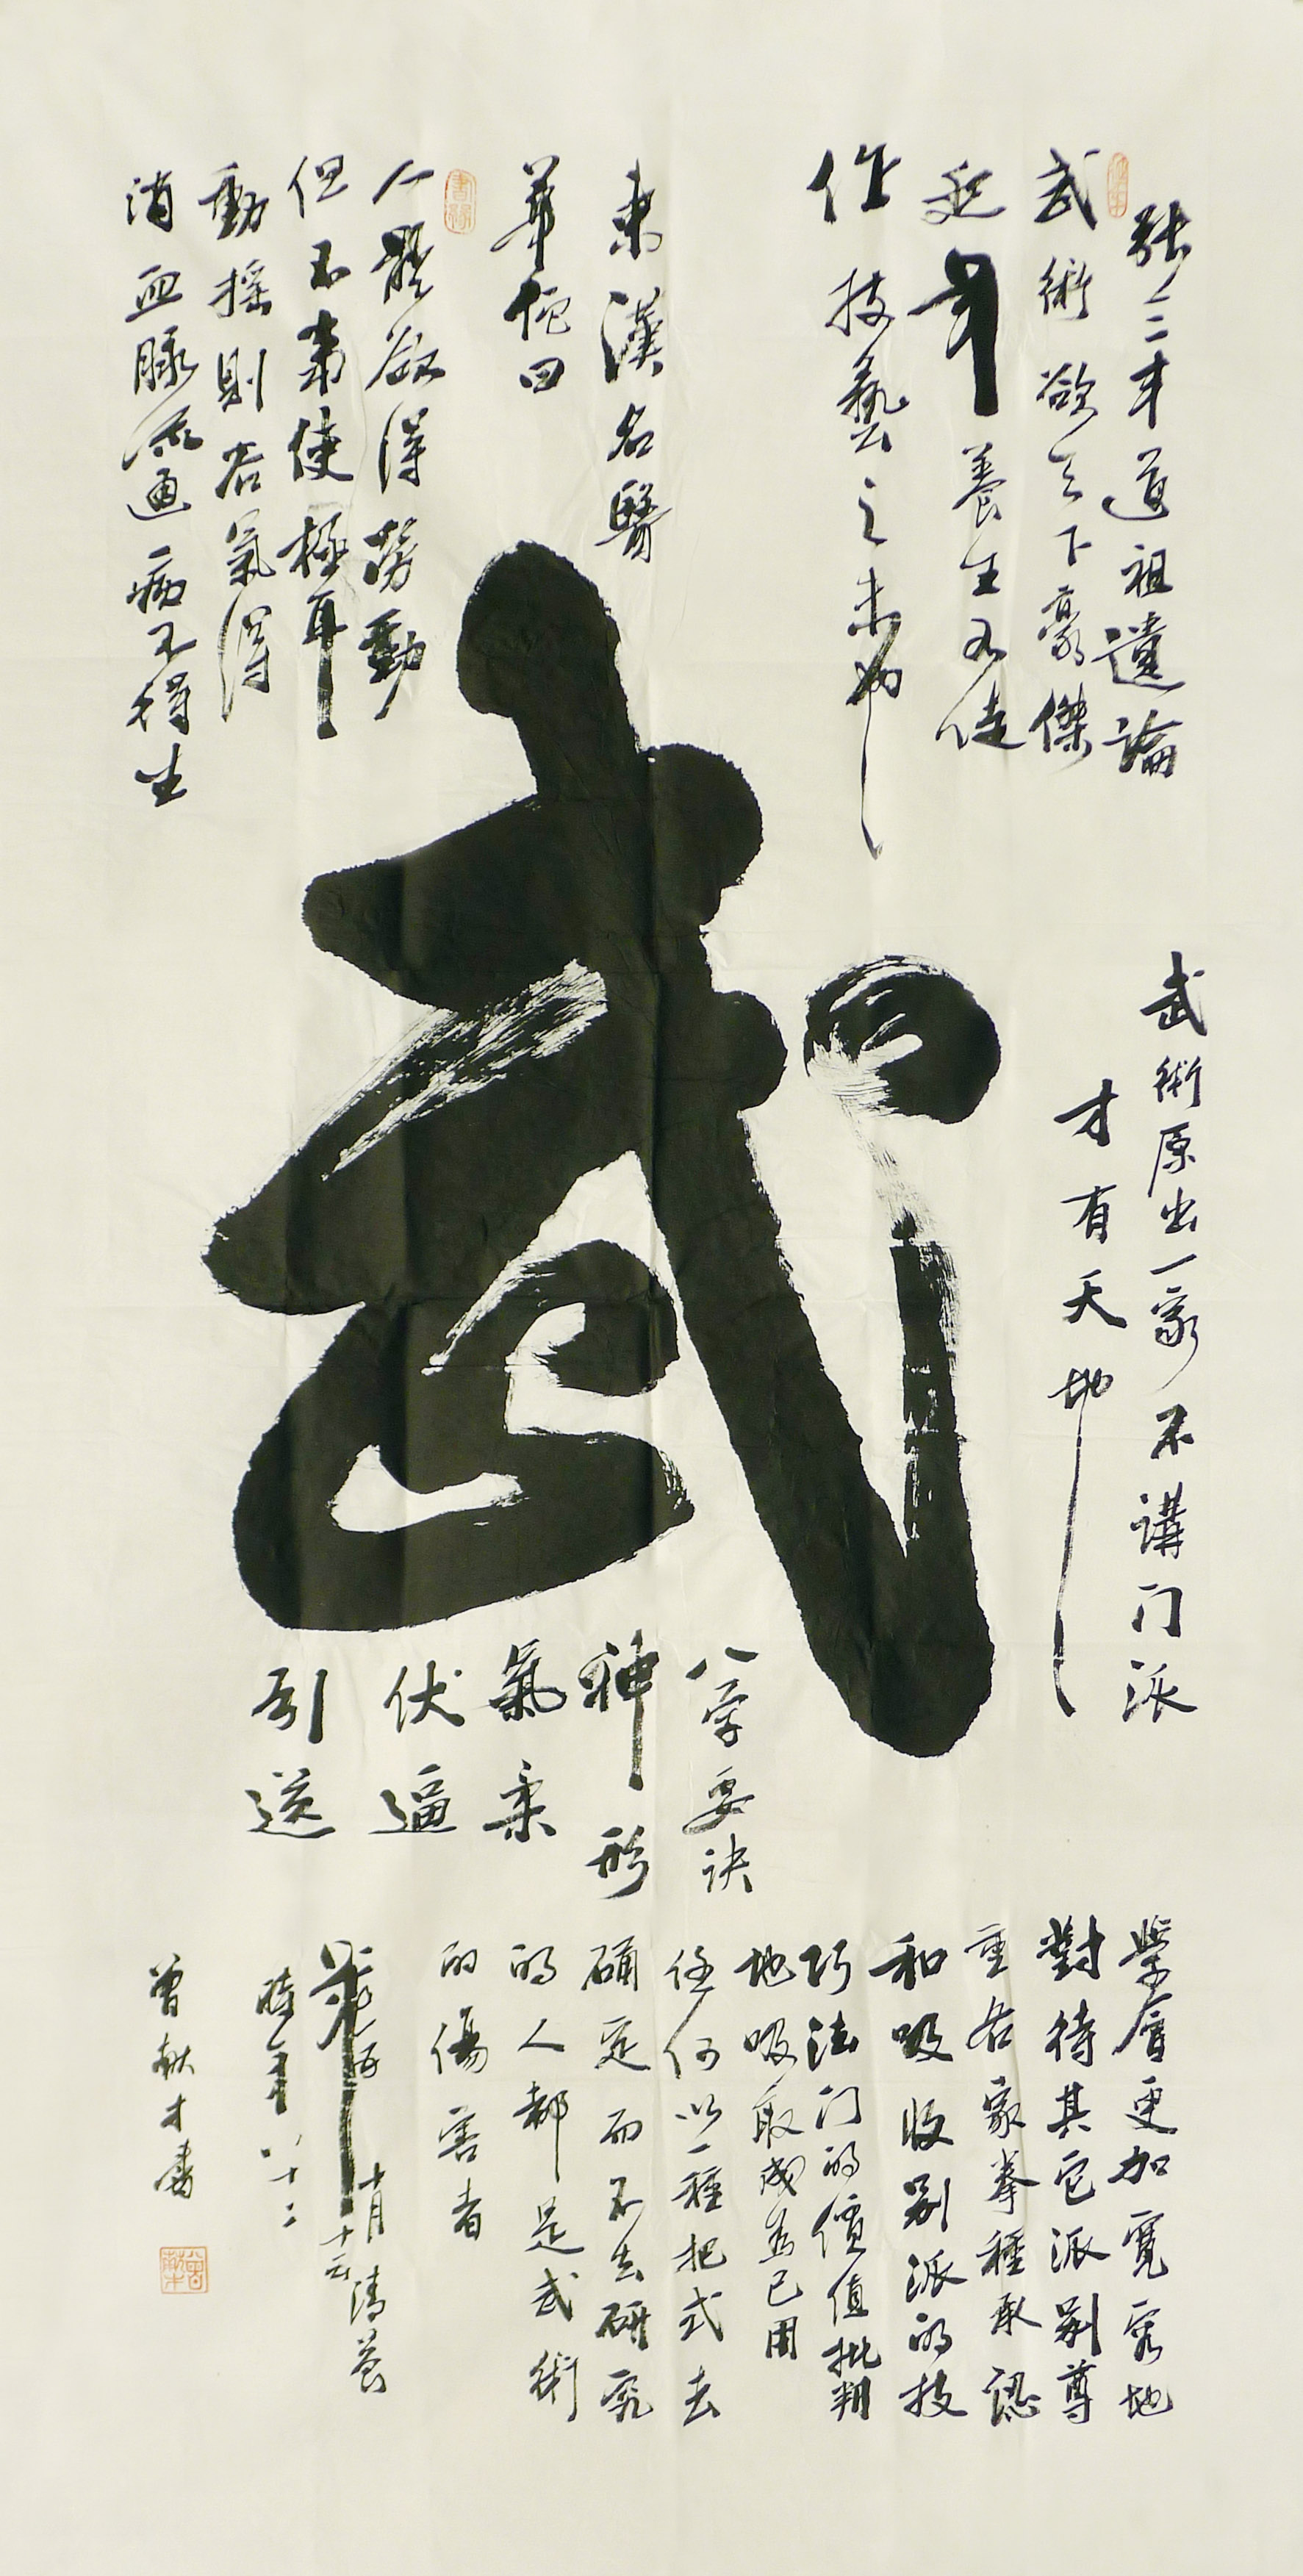 張三丰道祖遺論
武術欲天下豪傑
延年養生不徒
作技藝之末也
東漢名醫
華佗曰
人體欲得勞動
但不當使極耳
動搖則谷氣得
消血脉流通病不得生
武
武術原出一家不講门派
才有天地
八字要決
神形
氣柔
伏逼
引送
學會更加寬容地
對待其它派别尊
重各家拳種承認
和吸收别派的技
巧法门的價值批判
地吸取成為己用
任何以一種把式去
确定而不去研究
的人都是武術
的傷害者
十月十二
清晨
時年八十二
曾献才書